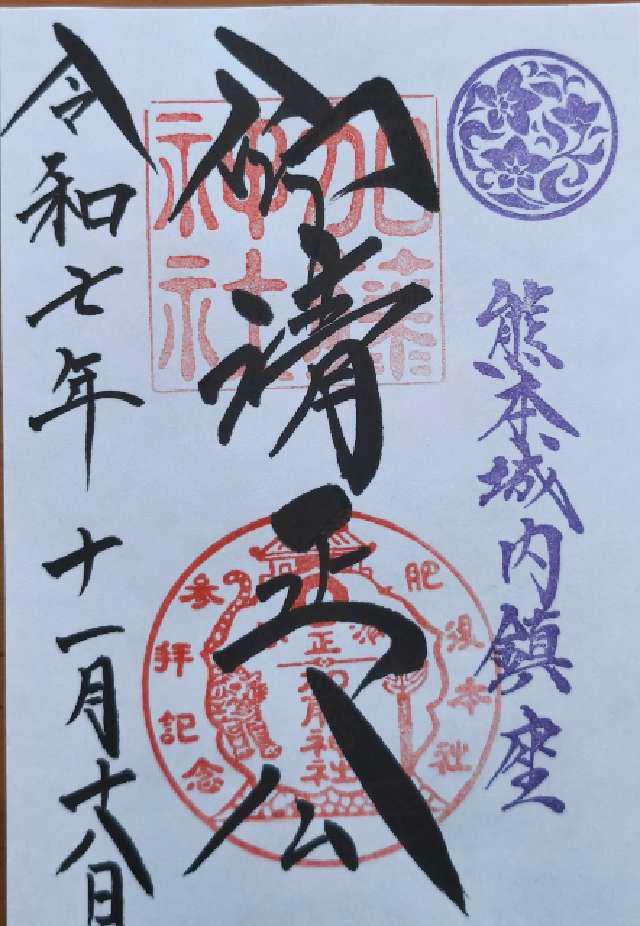 熊本城内鎮座
加藤
神社
仰清正公
肥後本社
加藤神社
参拝記念
令和七年十一月十八日